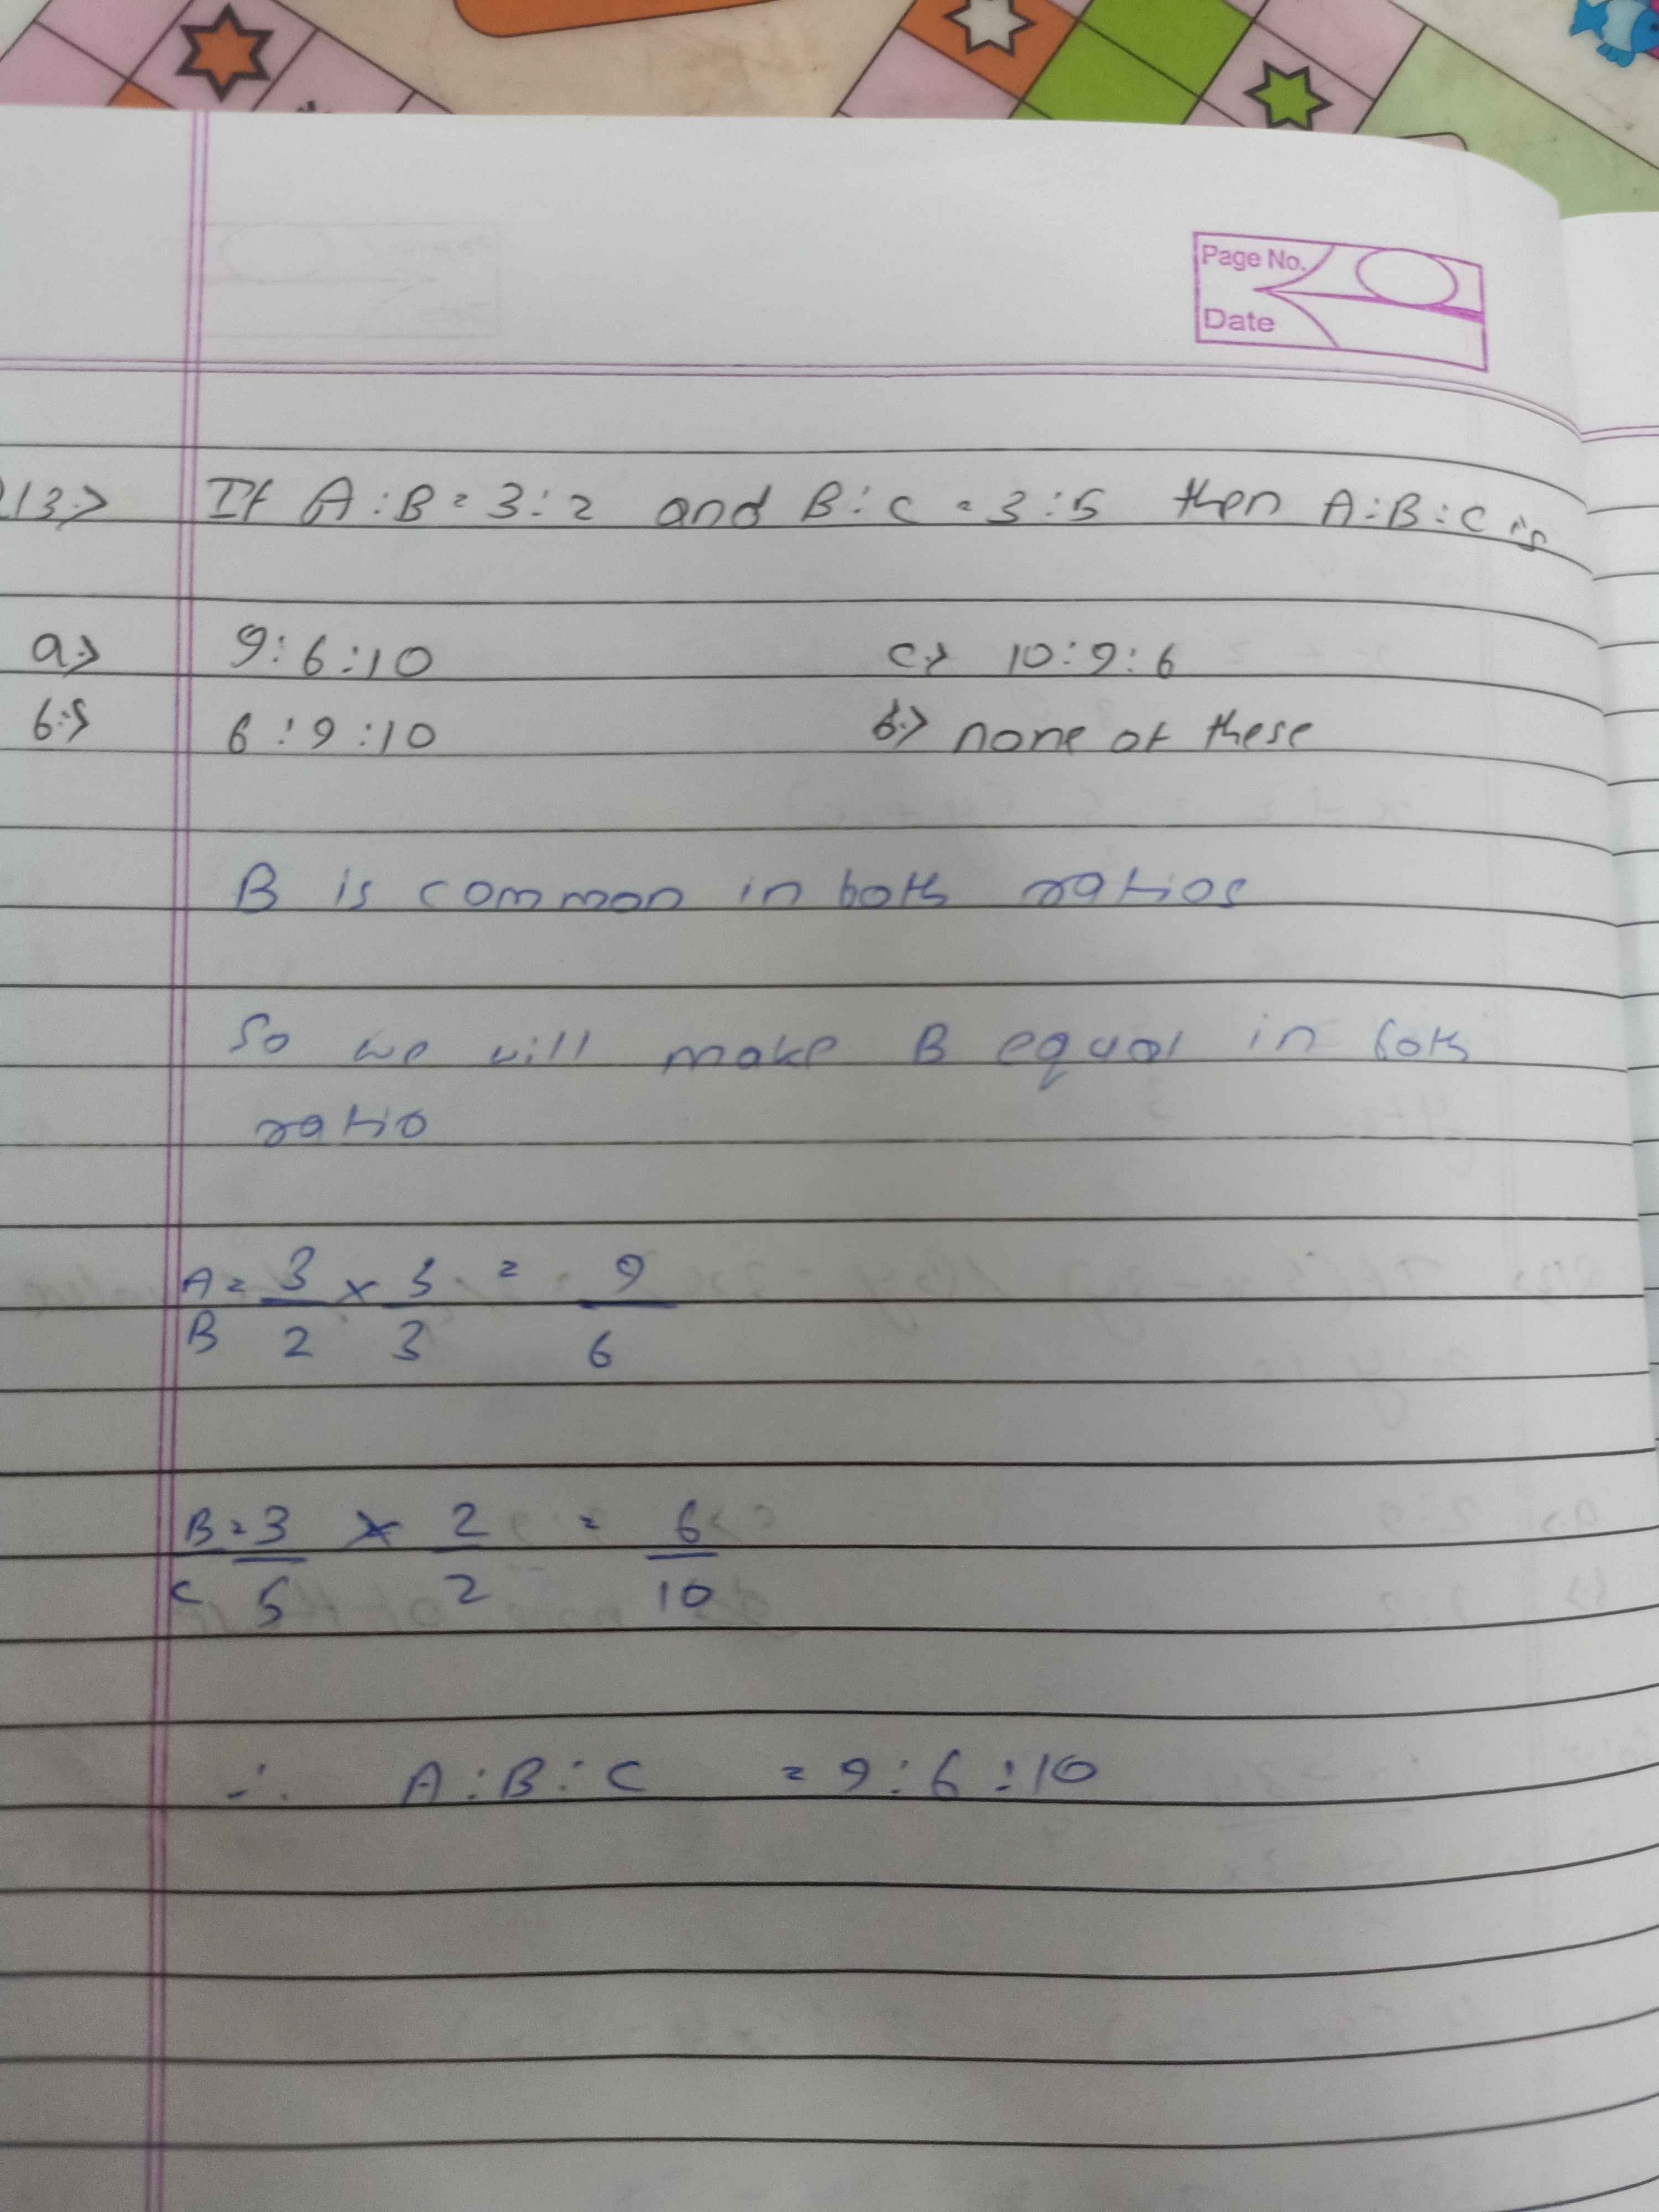 Page No.
Date
13.> If A:B = 3:2 and B:C = 3:5 then A:B:C is
a.> 9:6:10 c.> 10:9:6
b.> 6:9:10 d.> none of these
B is common in both ratios
So we will make B equal in both
ratio
A = 3 × 3 = 9
B 2 3 6
B = 3 × 2 = 6
C 5 2 10
∴ A:B:C = 9:6:10